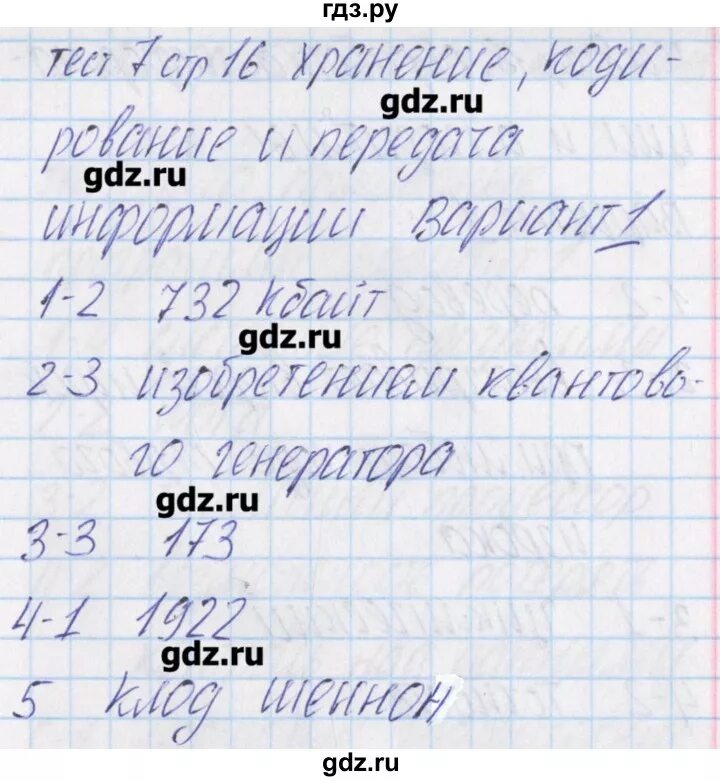 гдз.ру
тест 7 стр 16 хранение, коди-
gdz.ru
рование и передача
gdz.ru
информации вариант 1
1-2 732 Кбайт
gdz.ru
2-3 изобретением квантово-
го генератора
gdz.ru
3-3 173
4-1 1922
gdz.ru
5 клод шеннон
gdz.ru